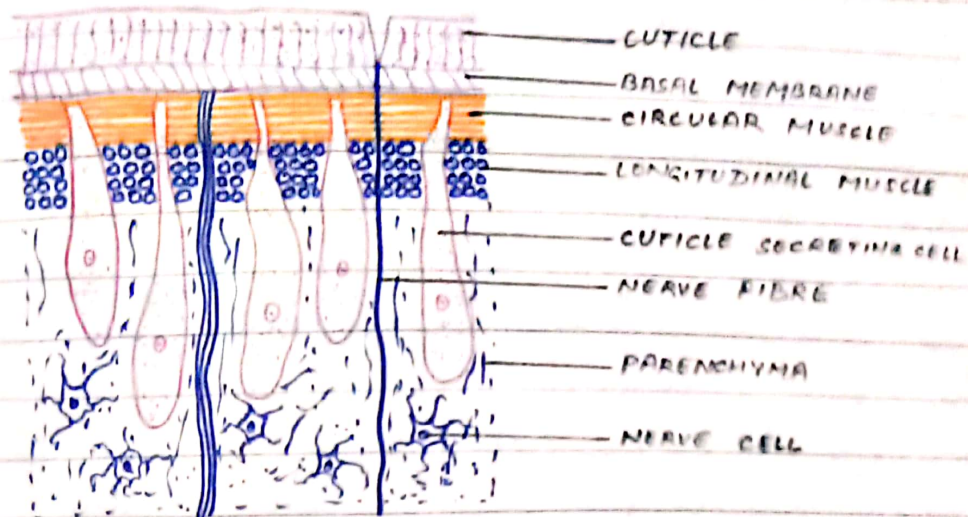 CUTICLE
BASAL MEMBRANE
CIRCULAR MUSCLE
LONGITUDINAL MUSCLE
CUTICLE SECRETING CELL
NERVE FIBRE
PARENCHYMA
NERVE CELL